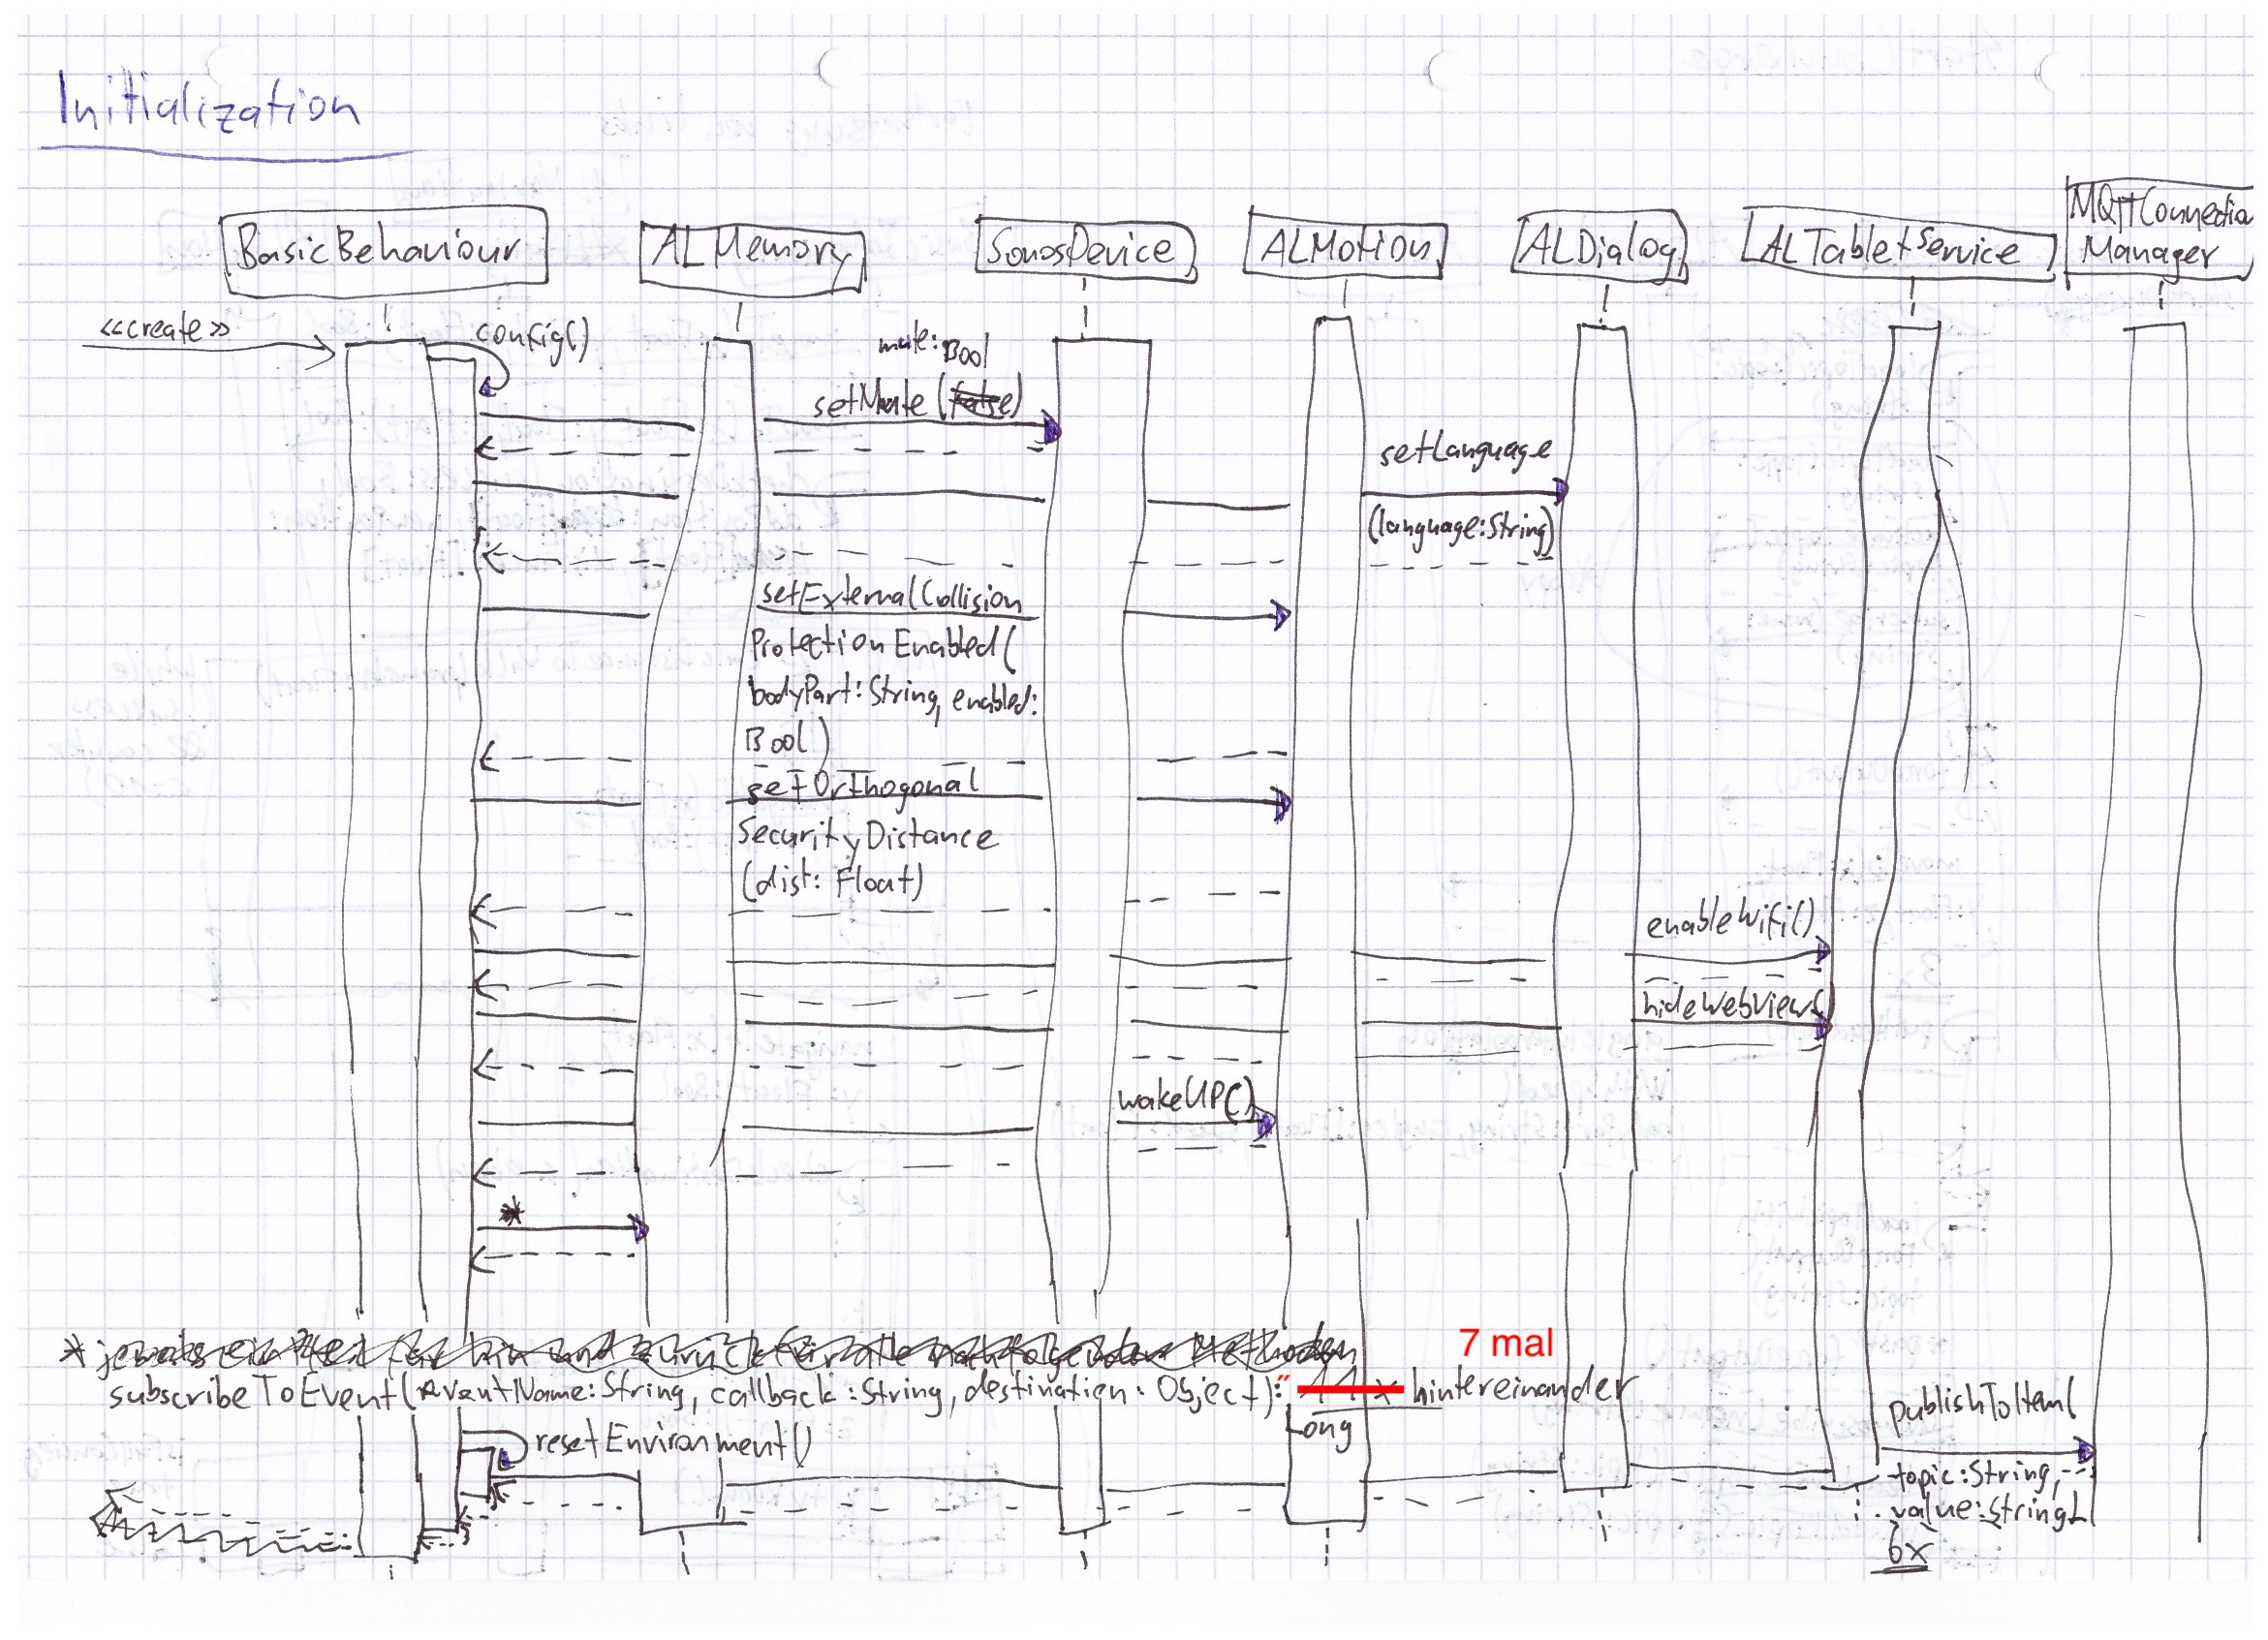 Initialization
BasicBehaviour
ALMemory
SonosDevice
ALMotion
ALDialog
ALTabletService
MQTTConnectio
Manager
<<create>>
config()
mute: Bool
setMute (false)
setLanguage
(language:String)
setExternalCollision
ProtectionEnabled(
bodyPart: String, enabled:
Bool)
setOrthogonal
SecurityDistance
(dist: Float)
enableWifi()
hideWebView()
wakeUP()
*
7 mal
* jeweils ein Pfeil für hin und zurück für alle nachfolgenden Methoden
subscribeToEvent(eventName: String, callback: String, destination: Object):" 11 x hintereinander
Long
publishToItem(
resetEnvironment()
topic: String,
value: String)
6x